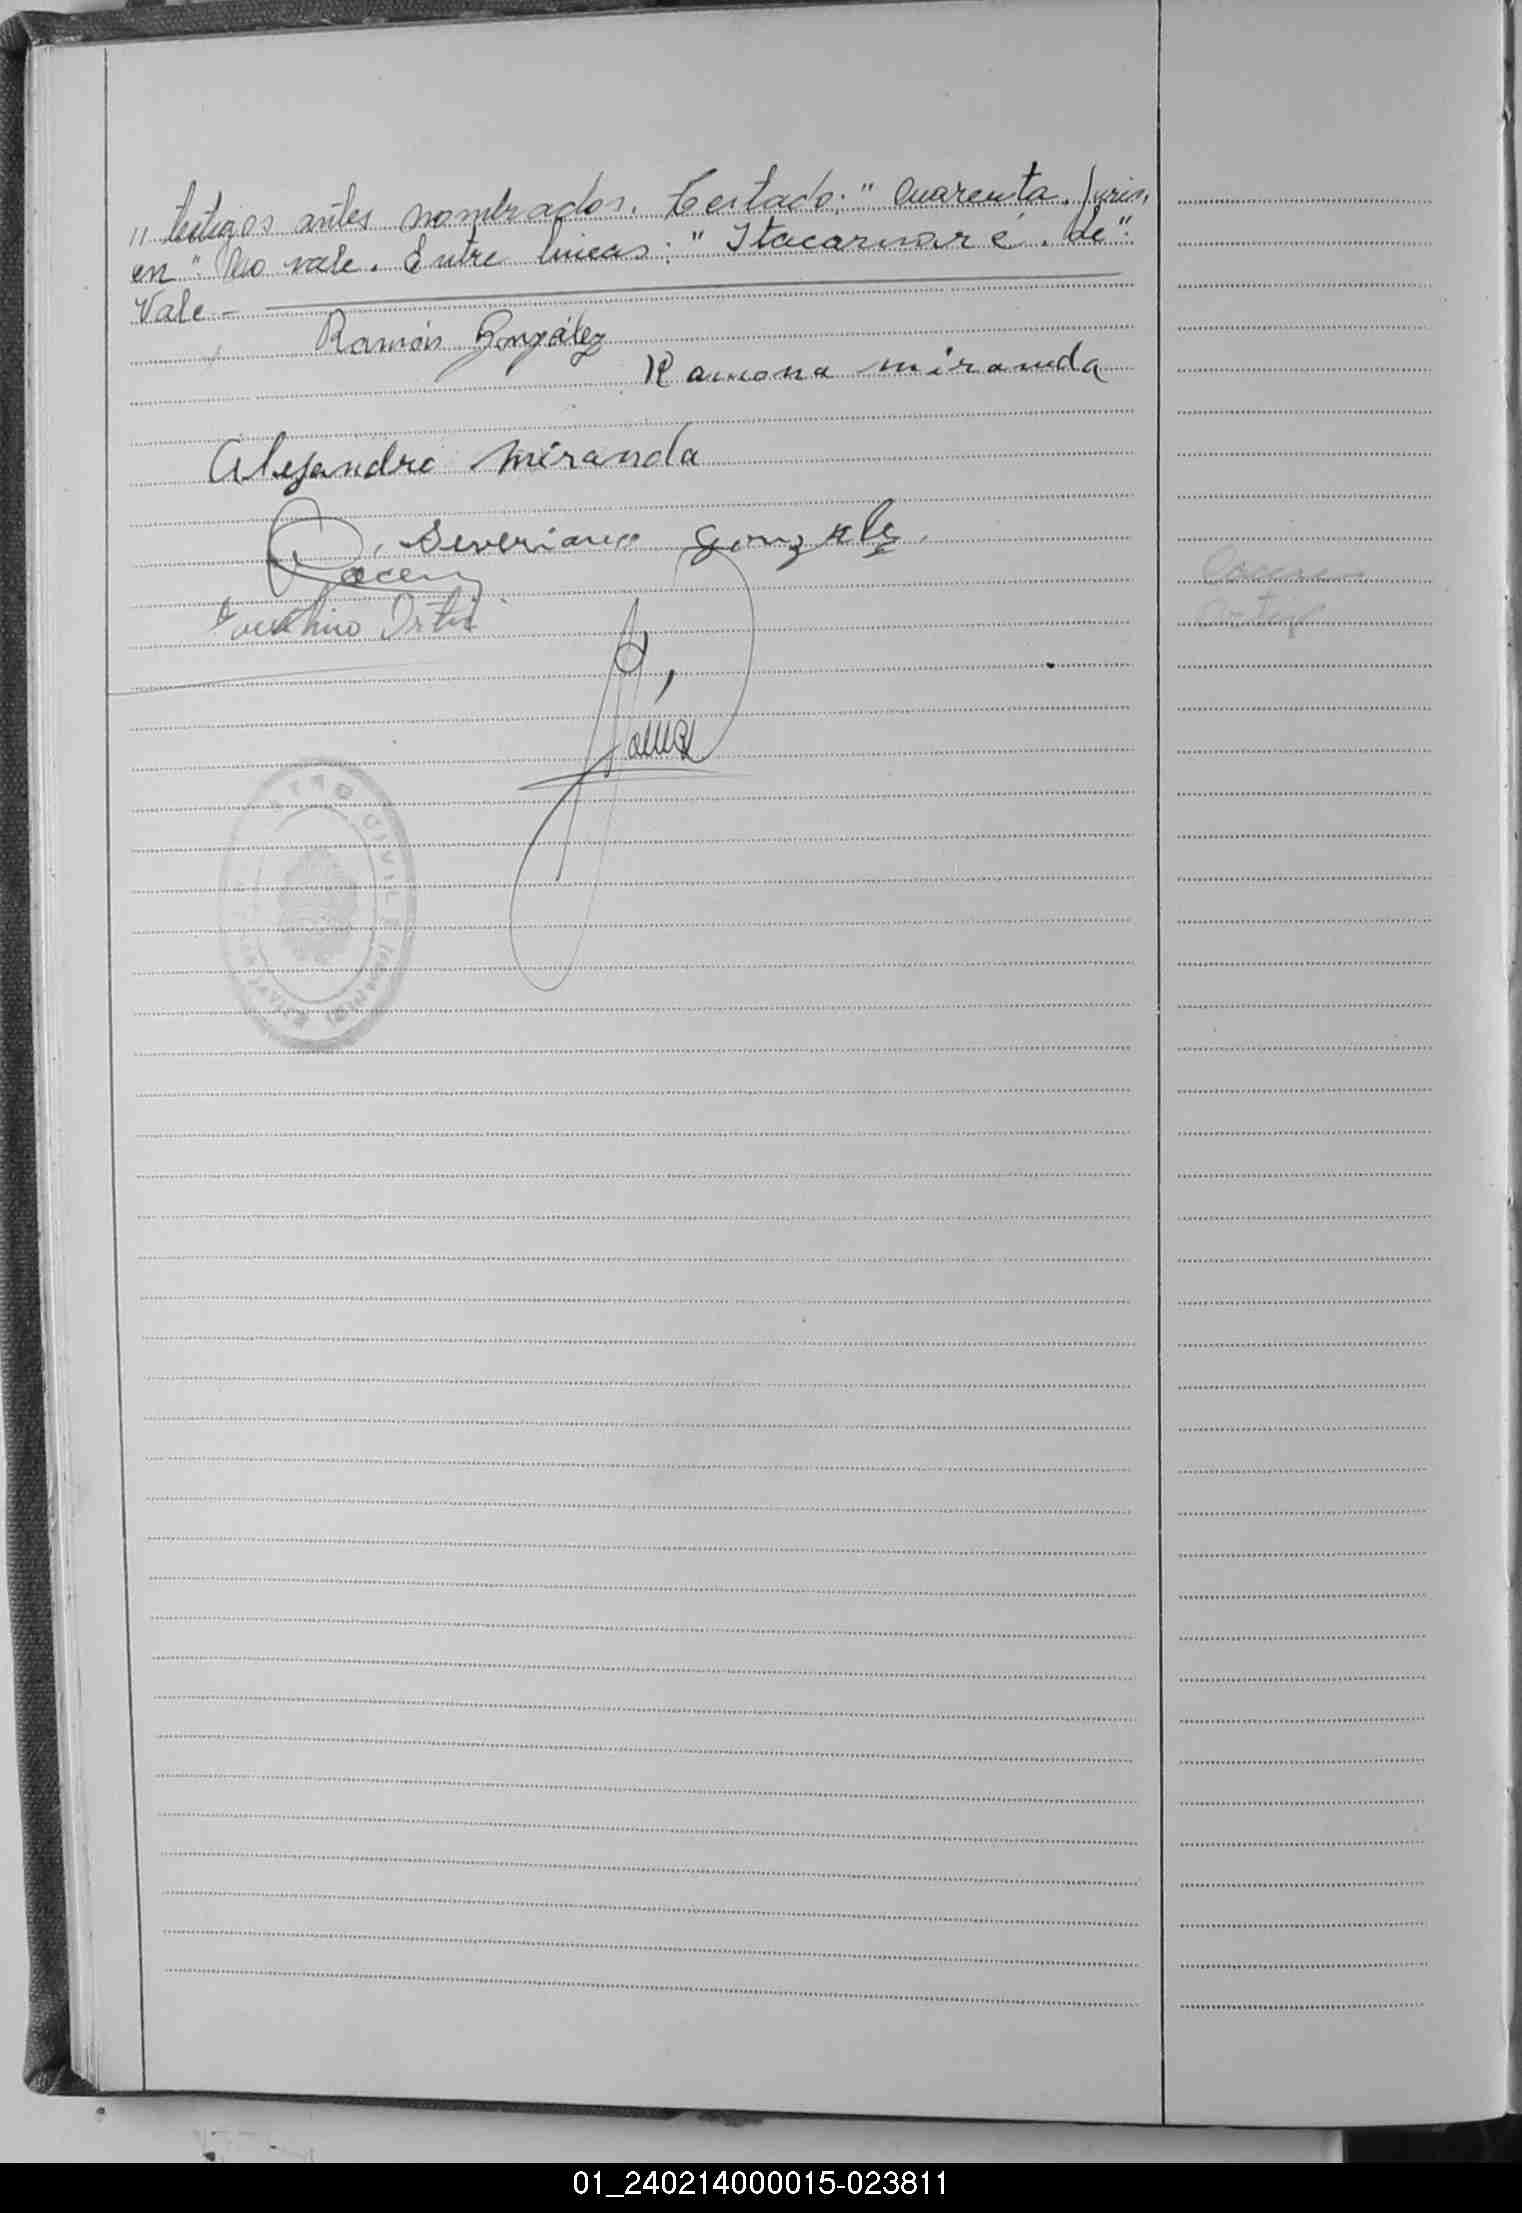 " testigos antes nombrados. Testado: " Cuarenta. Juris,
en ". No vale. Entre líneas: " Itacaruaré. de ".
Vale. —
Ramón González
Ramona miranda
Alejandro miranda
Severiano Gonzalez.
Caceres
Ortiz
Caceres
Ortiz
CIVIL
JAVIER
01_240214000015-023811